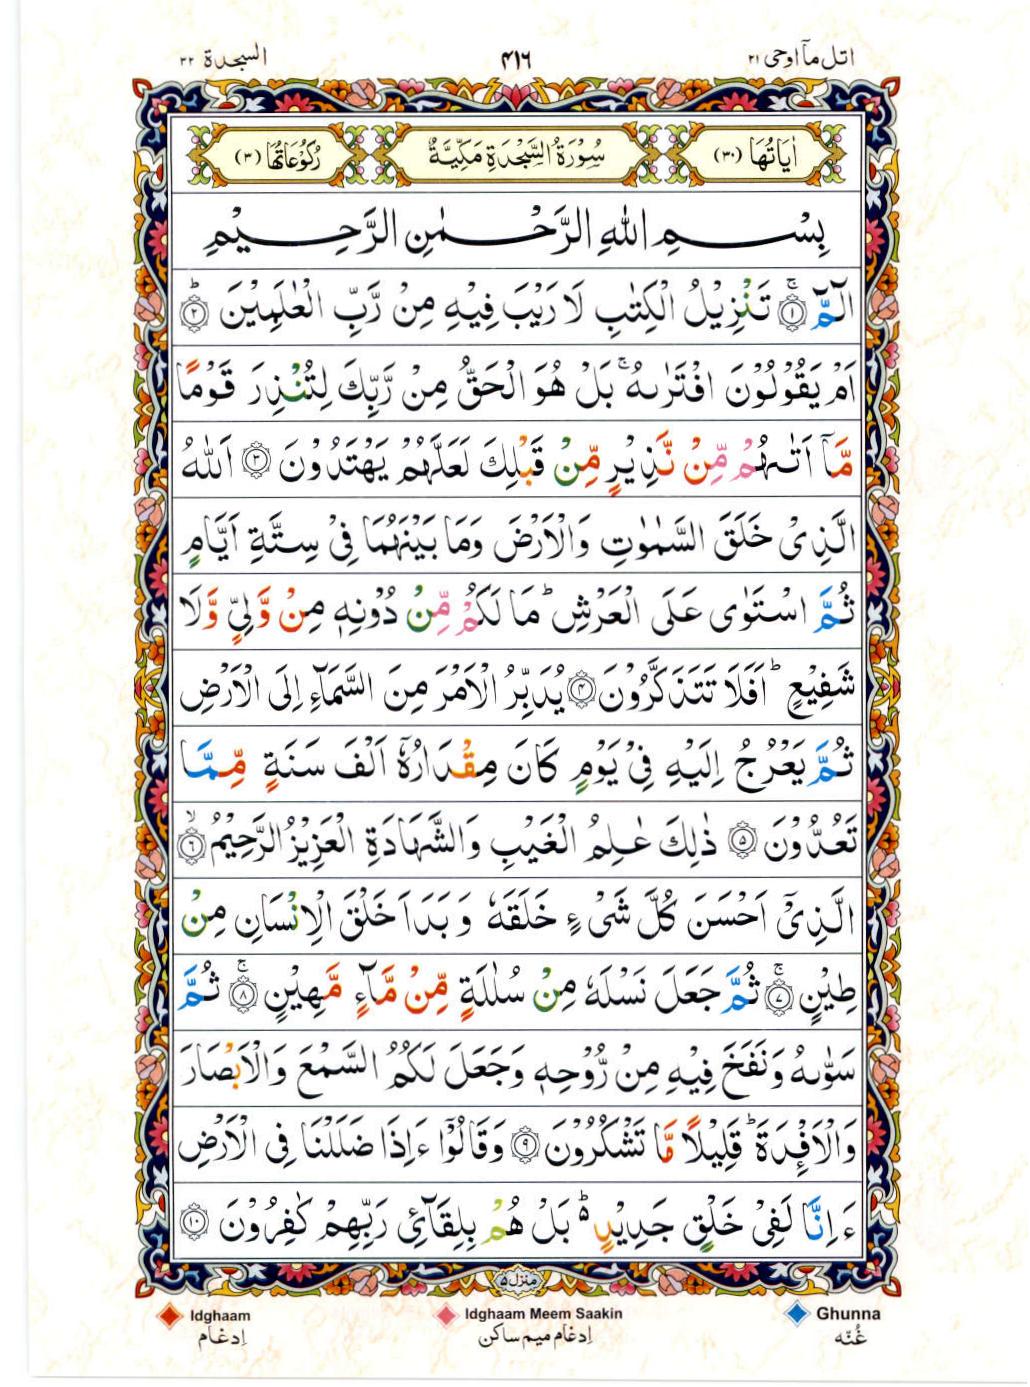 اتل مآ اوحی ۲۱
۴۱۶
السجدة ۳۲
اٰیَاتُهَا (۳۰)
سُوْرَةُ السَّجْدَةِ مَكِّيَّةٌ
رُكُوْعَاتُهَا (۳)
بِسْمِ اللّٰهِ الرَّحْمٰنِ الرَّحِيْمِ
الٓمّٓ ۚ‏﴿۱﴾ تَنْزِيْلُ الْكِتٰبِ لَا رَيْبَ فِيْهِ مِنْ رَّبِّ الْعٰلَمِيْنَ ؕ‏﴿۲﴾
اَمْ يَقُوْلُوْنَ افْتَرٰٮهُ ۚ بَلْ هُوَ الْحَقُّ مِنْ رَّبِّكَ لِتُنْذِرَ قَوْمًا
مَّاۤ اَتٰٮهُمْ مِّنْ نَّذِيْرٍ مِّنْ قَبْلِكَ لَعَلَّهُمْ يَهْتَدُوْنَ ﴿۳﴾ اَللّٰهُ
الَّذِىْ خَلَقَ السَّمٰوٰتِ وَالْاَرْضَ وَمَا بَيْنَهُمَا فِىْ سِتَّةِ اَيَّامٍ
ثُمَّ اسْتَوٰى عَلَى الْعَرْشِ ؕ مَا لَكُمْ مِّنْ دُوْنِهٖ مِنْ وَّلِىٍّ وَّلَا
شَفِيْعٍ ؕ اَفَلَا تَتَذَكَّرُوْنَ ﴿۴﴾ يُدَبِّرُ الْاَمْرَ مِنَ السَّمَآءِ اِلَى الْاَرْضِ
ثُمَّ يَعْرُجُ اِلَيْهِ فِىْ يَوْمٍ كَانَ مِقْدَارُهٗۤ اَلْفَ سَنَةٍ مِّمَّا
تَعُدُّوْنَ ﴿۵﴾ ذٰلِكَ عٰلِمُ الْغَيْبِ وَالشَّهَادَةِ الْعَزِيْزُ الرَّحِيْمُ ۙ‏﴿۶﴾
الَّذِىْۤ اَحْسَنَ كُلَّ شَىْءٍ خَلَقَهٗ وَبَدَاَ خَلْقَ الْاِنْسَانِ مِنْ
طِيْنٍ ۚ‏﴿۷﴾ ثُمَّ جَعَلَ نَسْلَهٗ مِنْ سُلٰلَةٍ مِّنْ مَّآءٍ مَّهِيْنٍ ۚ‏﴿۸﴾ ثُمَّ
سَوّٰٮهُ وَنَفَخَ فِيْهِ مِنْ رُّوْحِهٖ وَجَعَلَ لَكُمُ السَّمْعَ وَالْاَبْصَارَ
وَالْاَفْـِٕدَةَ ؕ قَلِيْلًا مَّا تَشْكُرُوْنَ ﴿۹﴾ وَقَالُوْۤا ءَاِذَا ضَلَلْنَا فِى الْاَرْضِ
ءَاِنَّا لَفِىْ خَلْقٍ جَدِيْدٍ ؕ بَلْ هُمْ بِلِقَآئِ رَبِّهِمْ كٰفِرُوْنَ ﴿۱۰﴾
منزل ۵
Idghaam
Idghaam Meem Saakin
Ghunna
اِدغَام
اِدغَام میم ساکن
غُنّه